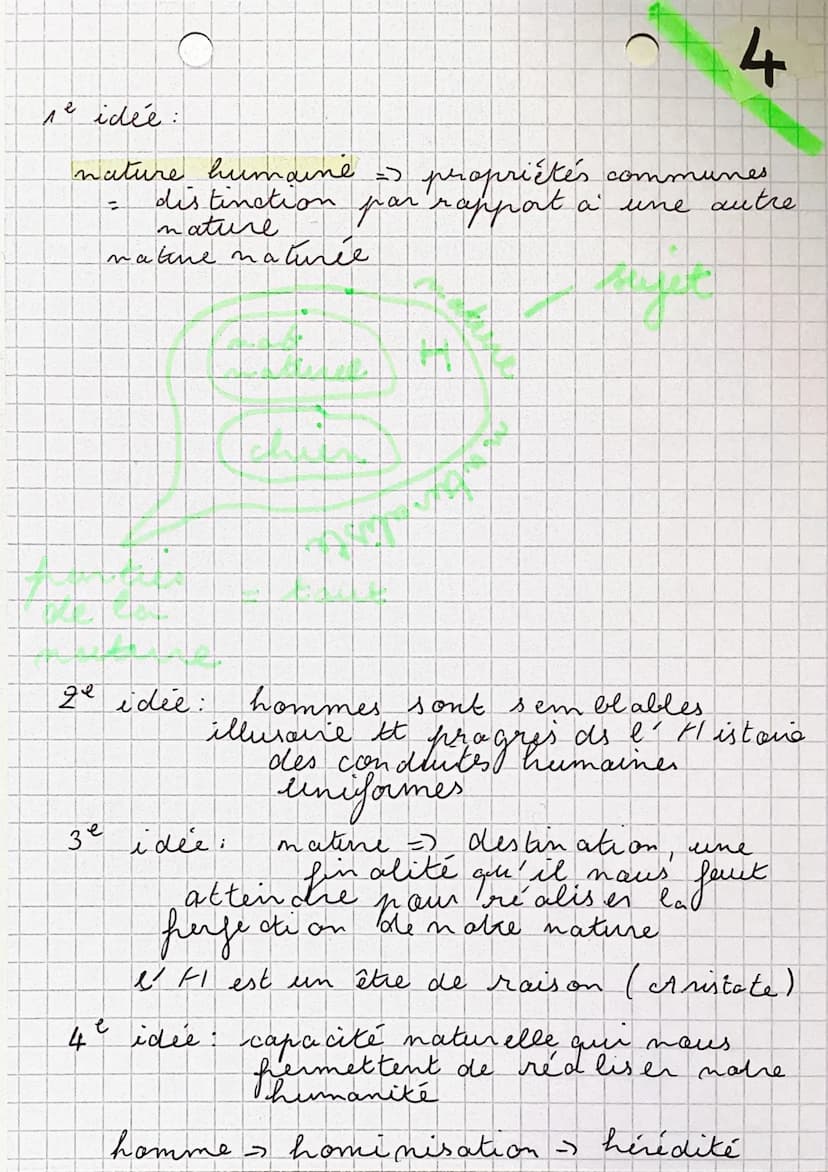 4
1e idée :
nature humaine => propriétés communes
= distinction par rapport à une autre
nature
nature naturée
nature - sujet
nat. H
naturel
chien
naturaliste
parties
de la = tout
nature
2e idée : hommes sont semblables
illusoire tt progrès ds l'Histoire
des conduites humaines
uniformes
3e idée : nature => destination, une
finalité qu'il nous faut
atteindre pour réaliser la
perfection de notre nature
l'H est un être de raison (Aristote)
4e idée : capacité naturelle qui nous
permettent de réaliser notre
humanité
homme => hominisation => hérédité